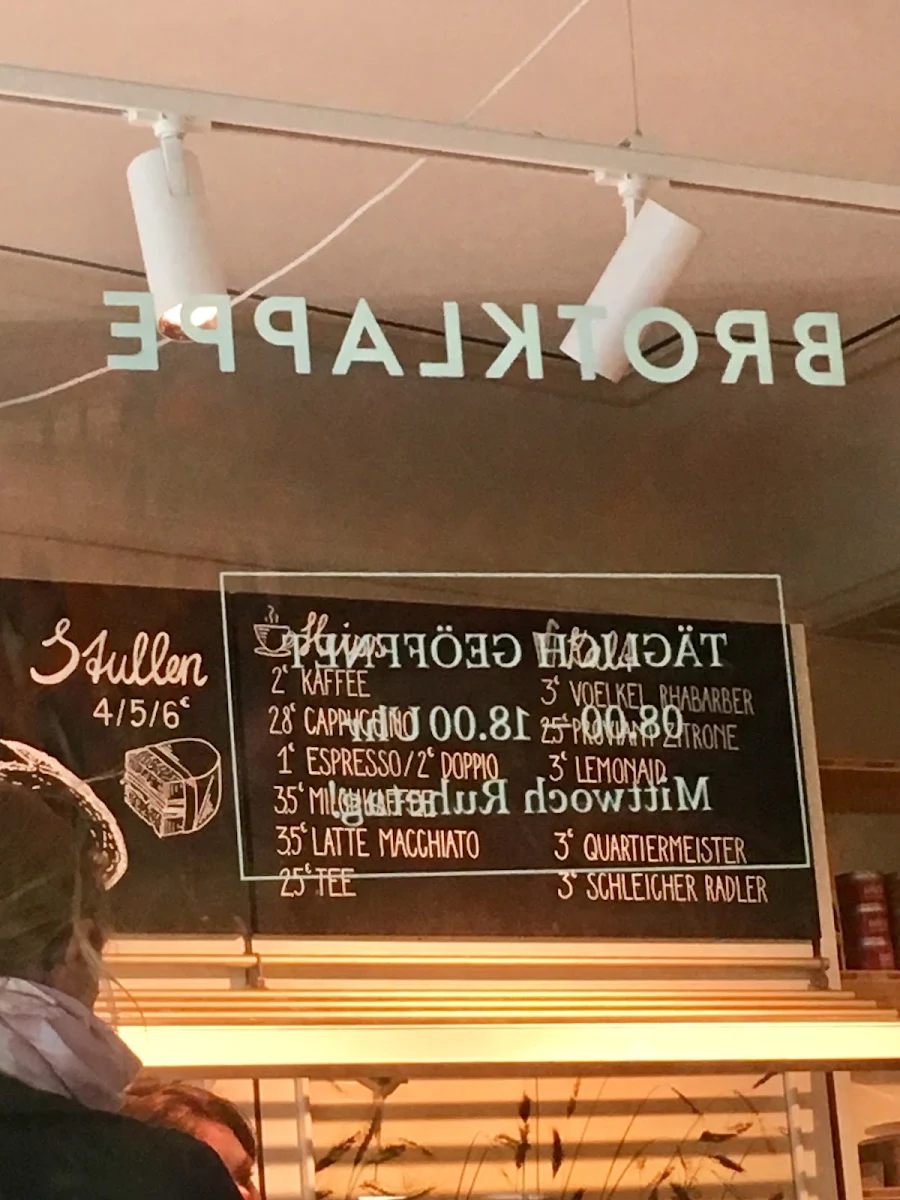 BROTKLAPPE
TÄGLICH GEÖFFNET
08.00 – 18.00 Uhr
Mittwoch Ruhetag!
Stullen
4/5/6€
Heiss
2€ KAFFEE
2.8€ CAPPUCCINO
1€ ESPRESSO/2€ DOPPIO
3.5€ MILCHKAFFEE
3.5€ LATTE MACCHIATO
2.5€ TEE
Kalt
3€ VOELKEL RHABARBER
2.5€ PROVIANT ZITRONE
3€ LEMONAID
3€ QUARTIERMEISTER
3€ SCHLEICHER RADLER